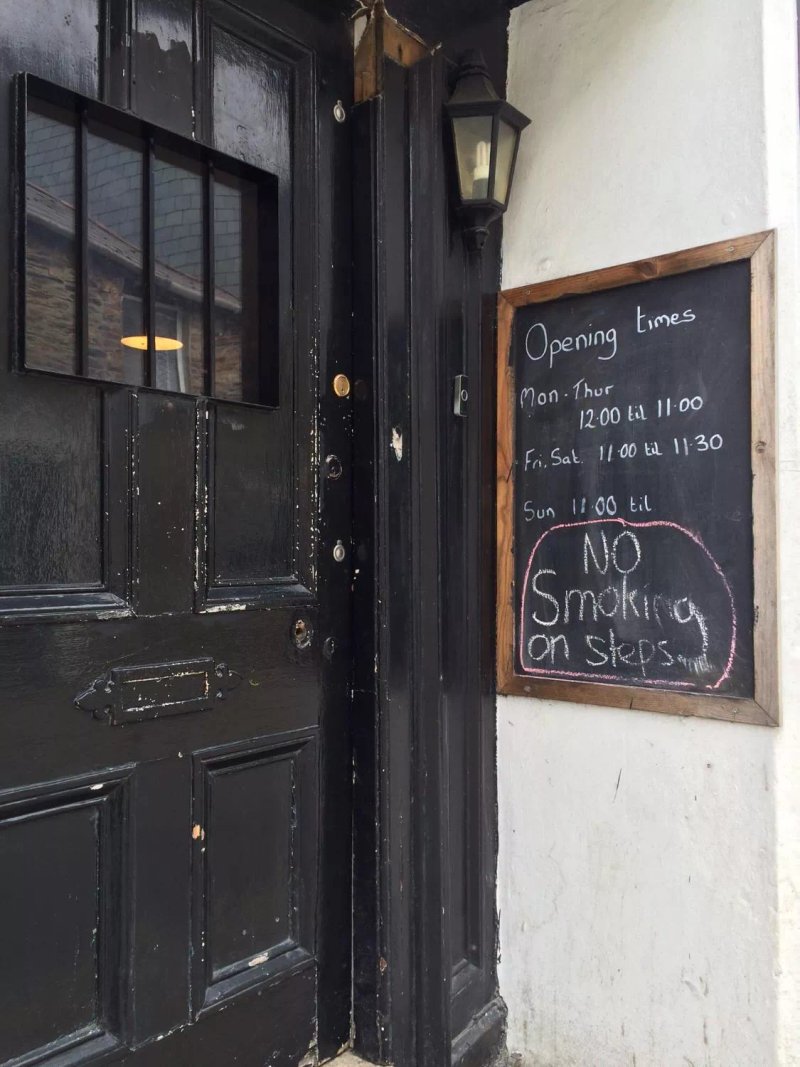 Opening times
Mon. Thur
12.00 til 11.00
Fri. Sat. 11.00 til 11.30
Sun 11.00 til
NO
Smoking
on steps